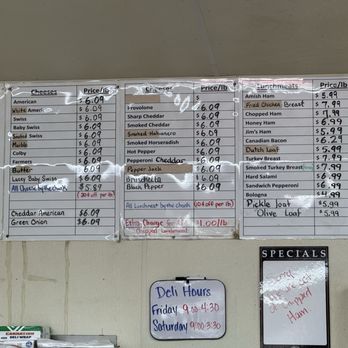 Cheeses Price/lb
American $ 6.09
White American $ 6.09
Swiss $ 6.09
Baby Swiss $ 6.09
Salted Swiss $ 6.09
Marble $ 6.09
Colby $ 6.09
Farmers $ 6.09
Butter $ 6.09
Lacey Baby Swiss $ 6.09
All Cheese by the chunk $5.89
(20¢ off per lb)
Cheddar American $6.09
Green Onion $6.09
Cheeses Price/lb
$
Provolone $ 6.09
Sharp Cheddar $ 6.09
Smoked Cheddar $ 6.09
Smoked Habanero $ 6.09
Smoked Horseradish $ 6.09
Hot Pepper $ 6.09
Pepperoni Cheddar $ 6.09
Pepper Jack $ 6.09
Bruschetta $ 6.09
Black Pepper $ 6.09
All Lunchmeat by the chunk (10¢ off per lb)
Extra Charge $1.00/lb
Chipped Lunchmeat
Lunchmeats Price/lb
Amish Ham $ 5.99
Fried Chicken Breast $ 7.99
Chopped Ham
Honey Ham $ 6.99
Jim's Ham $ 5.99
Canadian Bacon $ 6.29
Dutch Loaf $ 5.99
Turkey Breast $ 7.99
Smoked Turkey Breast $ 7.99
Hard Salami $ 6.99
Sandwich Pepperoni $ 6.99
Bologna $ 4.99
Pickle Loaf $ 5.99
Olive Loaf $ 5.99
Deli Hours
Friday 9:00-4:30
Saturday 9:00-3:30
SPECIALS
Ham.